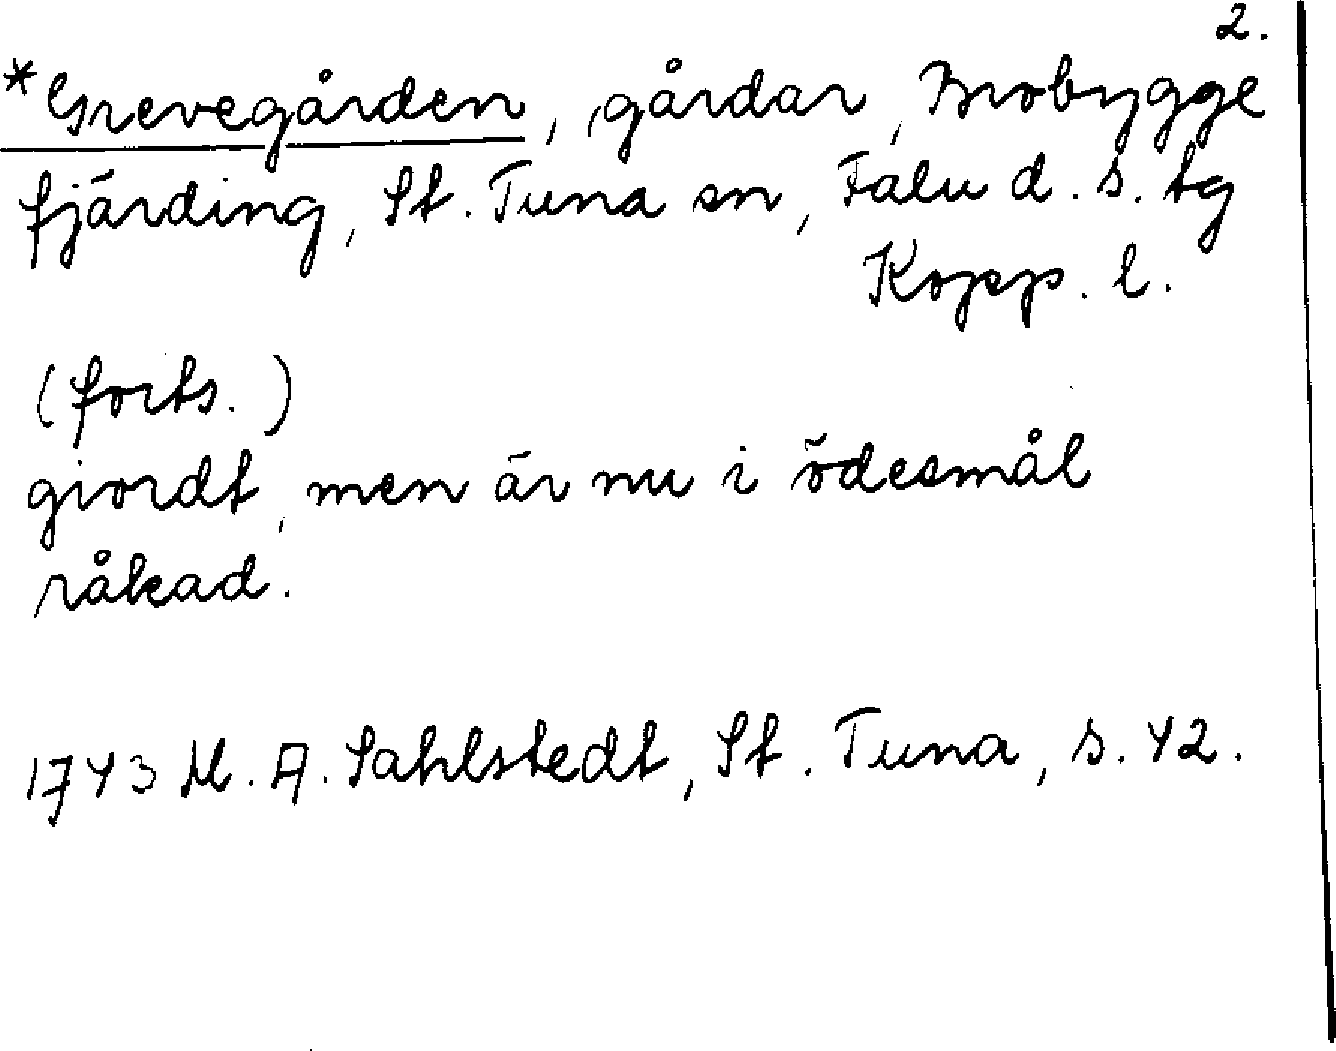 2.
*Grevegården, gårdar, Brobygge
fjärding, St. Tuna sn, Falu d. s. tg
Kopp. l.
(forts.)
giordt, men är nu i ödesmål
råkad.
1743 M. A. Sahlstedt, St. Tuna, s. 42.